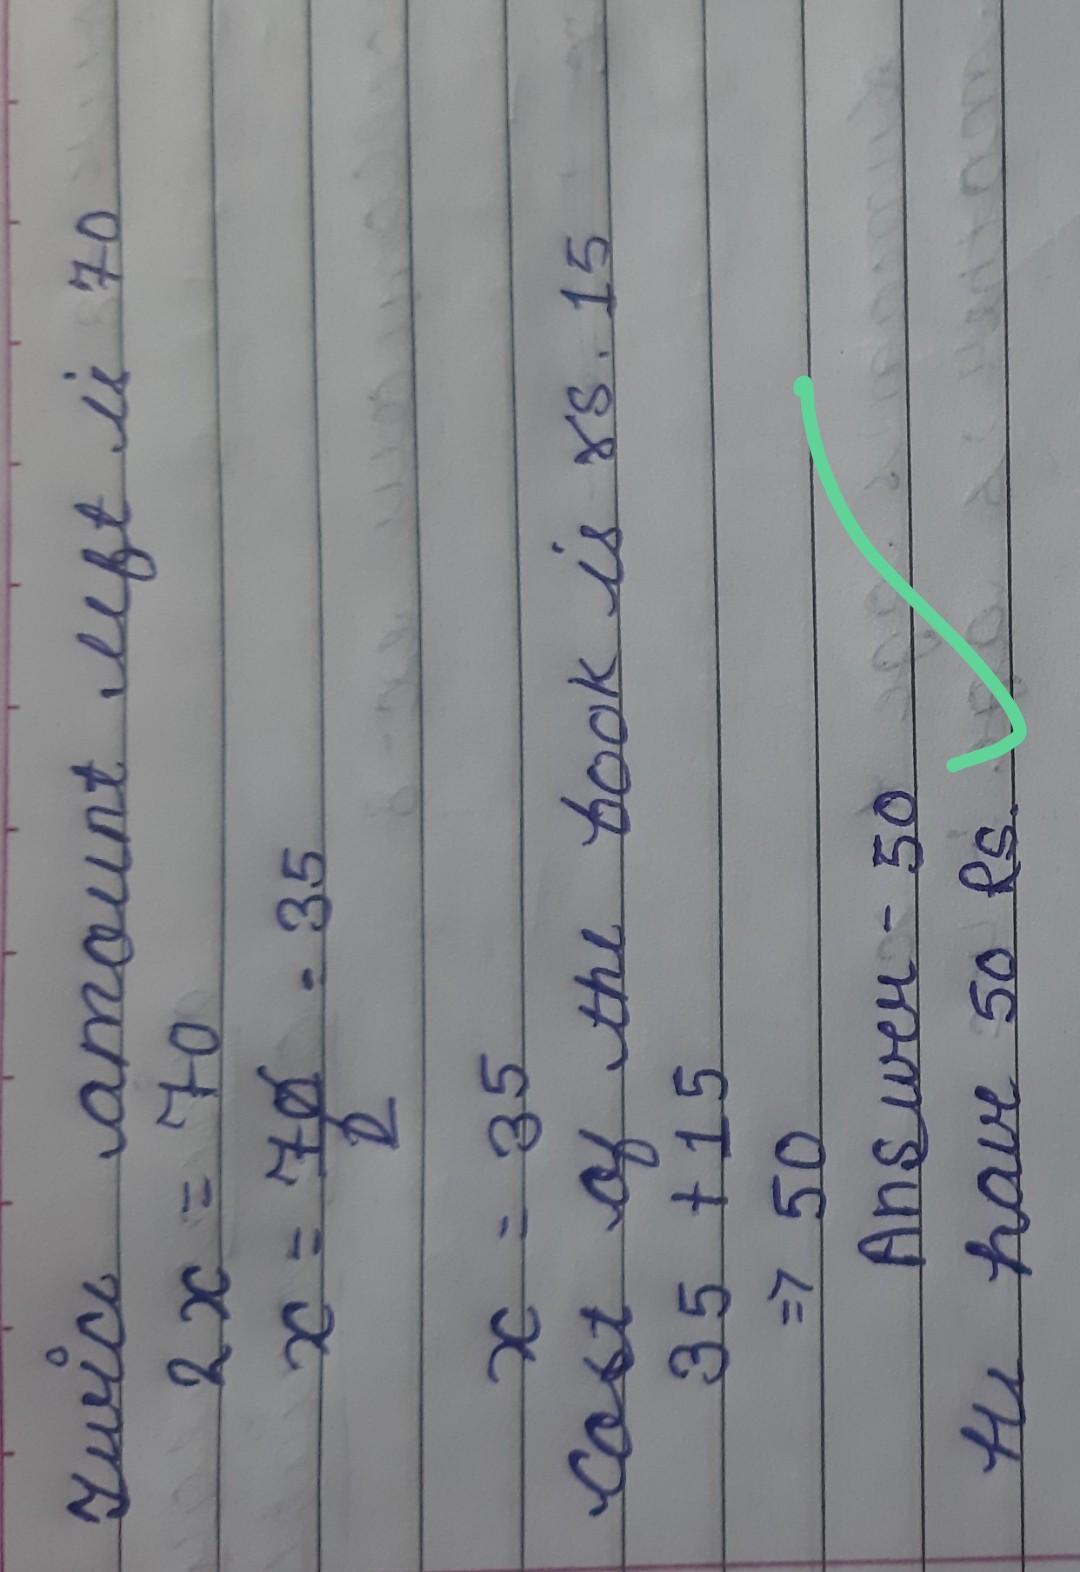 Twice amount left is 70
2x = 70
x = 70/2 = 35
x = 35
Cost of the book is rs. 15
35 + 15
=> 50
Answer - 50
He have 50 Rs.